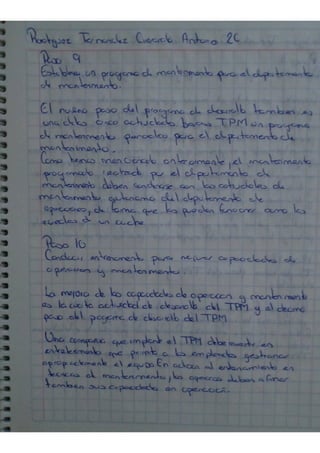 Rodriguez Fernandez Gerardo Antonio 2C
Paso 9
Establecer un programa de mantenimiento para el departamento
de mantenimiento.
El noveno paso del programa de desarrollo tambien es
una de las cinco actividades basicas TPM un programa
de mantenimiento periodico para el departamento de
mantenimiento.
Como hemos mencionado anteriormente, el mantenimiento
programado realizado por el departamento de
mantenimiento deben coordinarse con las actividades de
mantenimiento autonomo del departamento de
operaciones, de forma que los puedan funcionar como las
ruedas de un coche
Paso 10
Conducir entrenamiento para mejorar capacidades de
operacion y mantenimiento.
La mejora de las capacidades de operacion y mantenimiento
es la cuarta actividad de desarrollo del TPM y el decimo
paso del programa de desarrollo del TPM
Una compañia que implante el TPM debe invertir en
entrenamiento que permita a los empleados gestionar
apropiadamente el equipo. En adicion al entrenamiento en
tecnicas de mantenimiento, los operarios deben afinar
tambien sus capacidades en operacion.